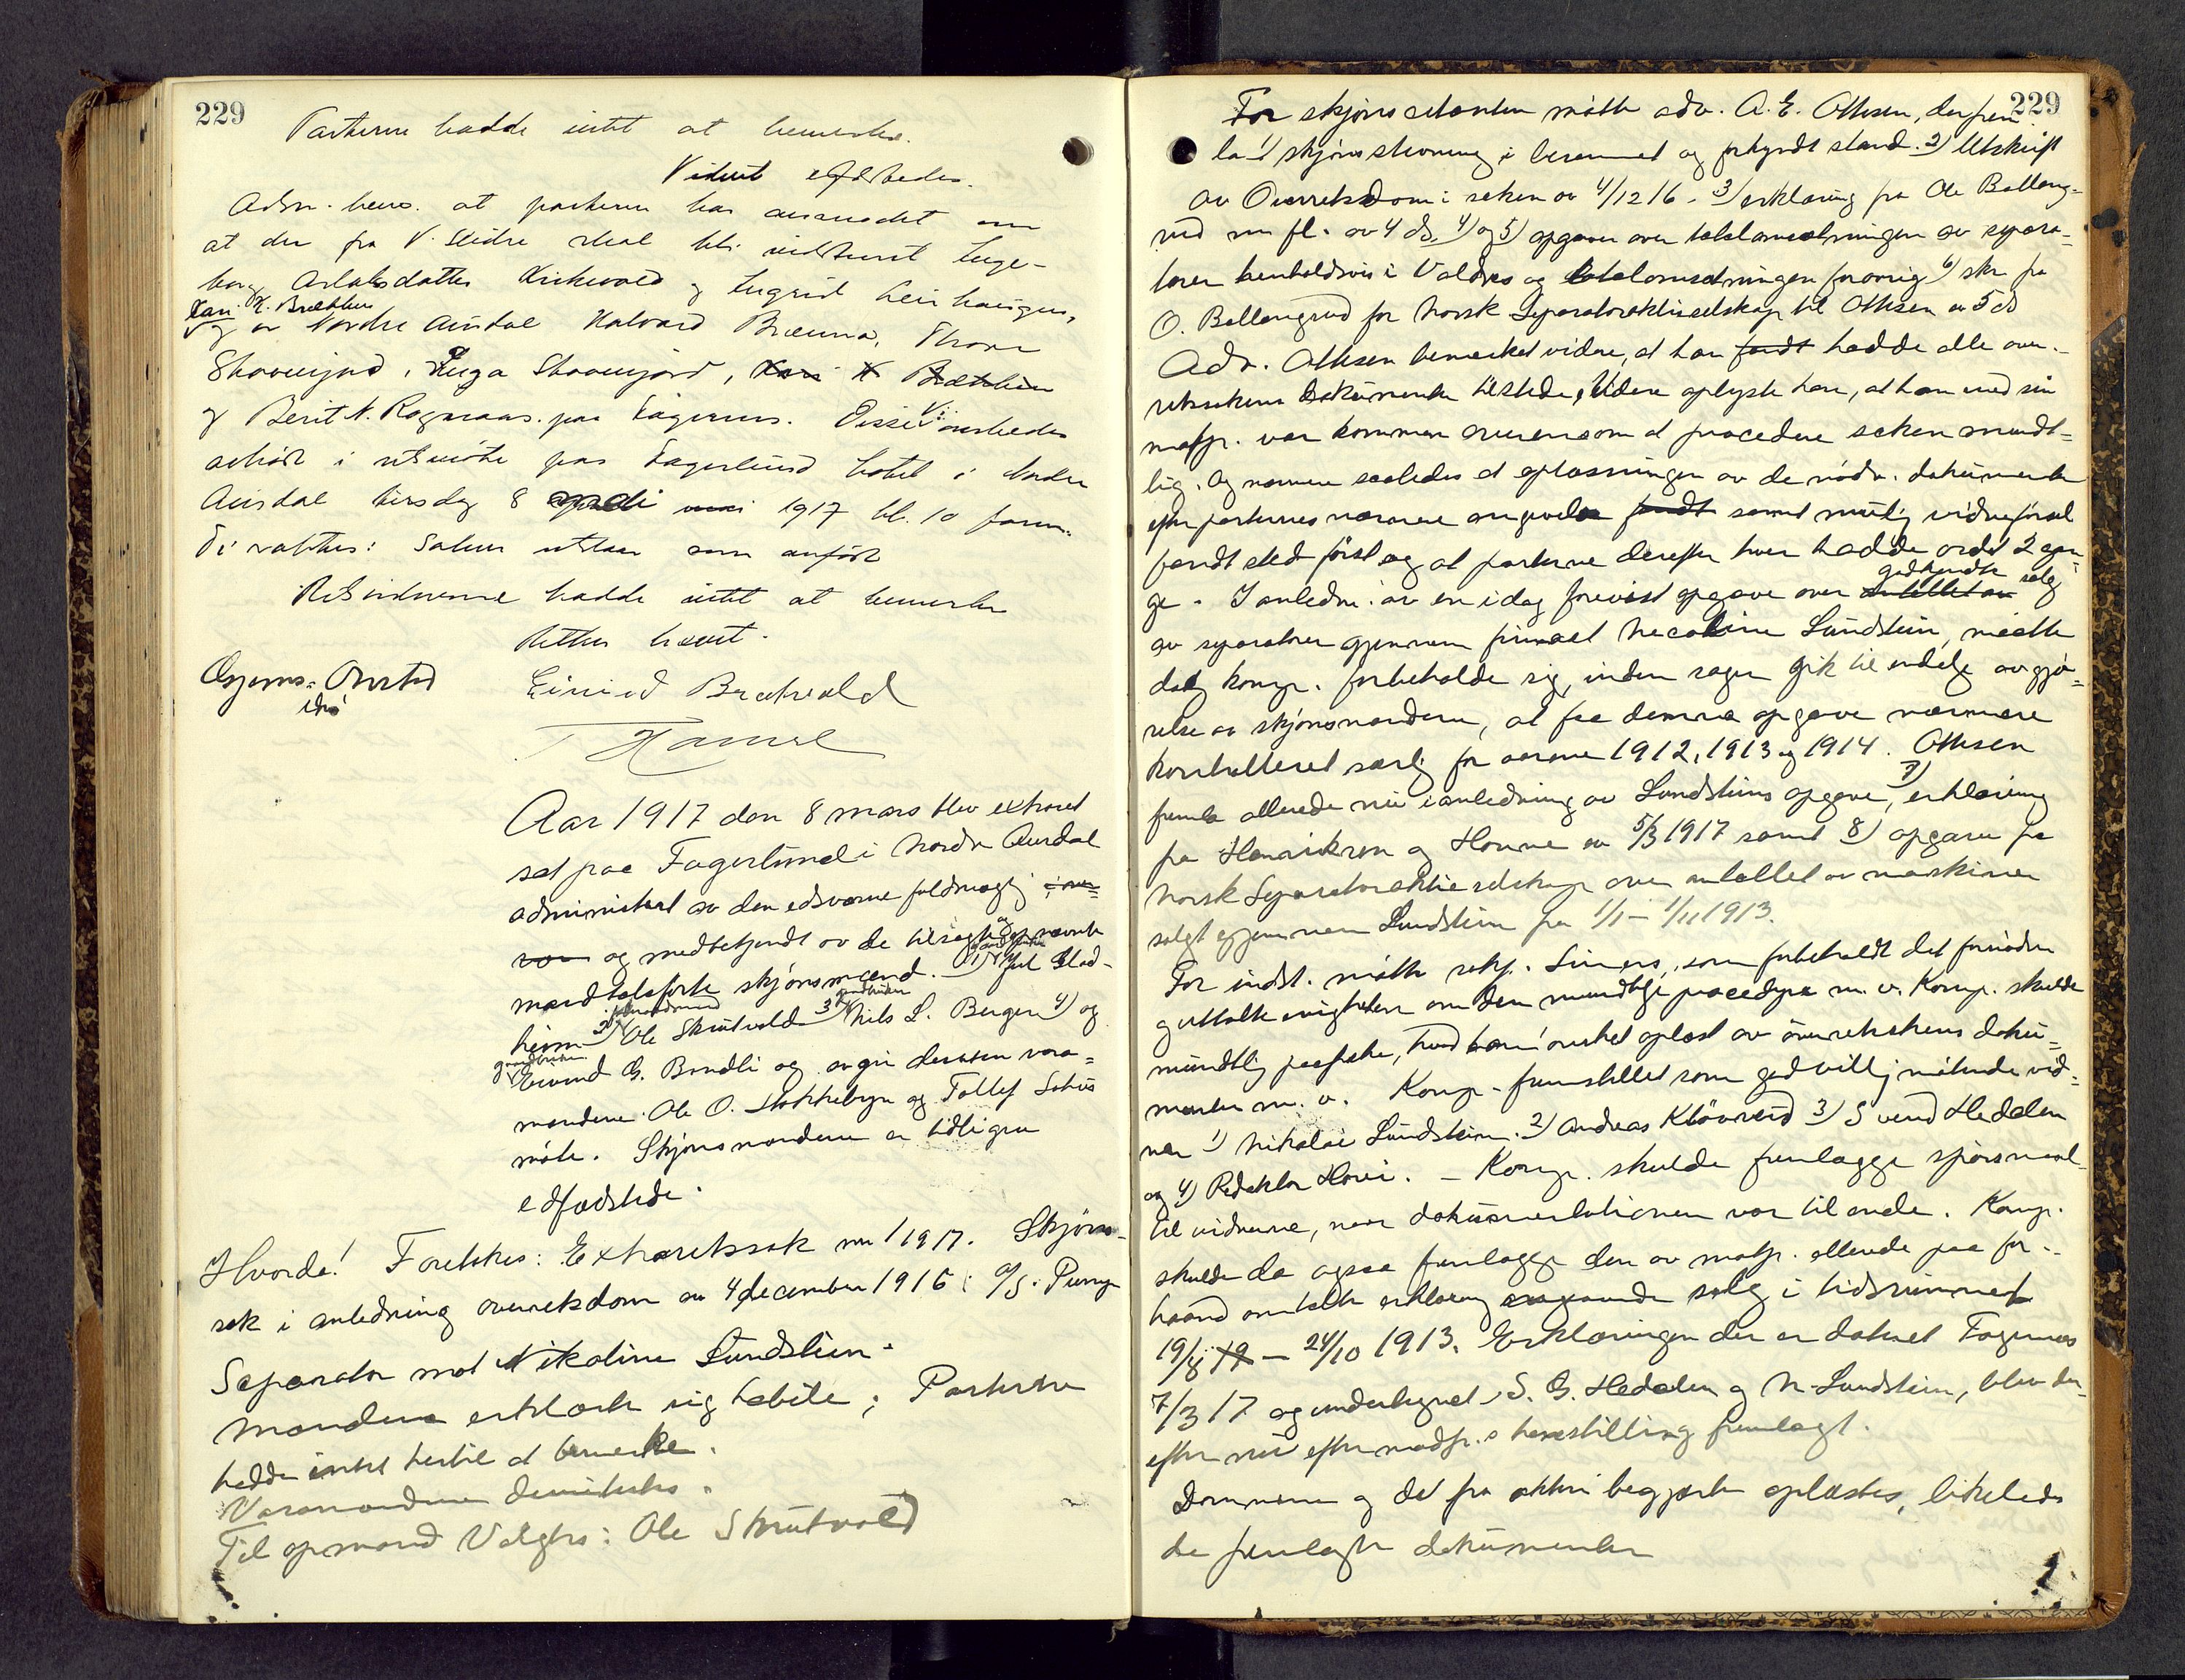 229
Parterne hadde intet at bemerke.
Vidnet
Adm. bem. at parterne har anmodet om
at der fra V. Slidre skal bli indkaldt Inge-
borg Aslaksdatter Kirkevold og Ingrid
Kari K. Brækken
og av Nordre Aurdal Halvard Brenna, Thora
Skavengjord, Inga Skavengjord, Kari K Brækken
og Berit N. Rognaas paa Fagernes. Disse
avhørt i retsmøte paa Fagerlund hotel i Nordre
Aurdal tirsdag 8 mai 1917 kl. 10 form.
Saken utstaar som anført
Retsvidnerne hadde intet at bemerke
Retten hævet.
Eivind Brækvold
Hamre
Aar 1917 den 8 mars blev extraret
sat paa Fagerlund i Nordre Aurdal
administrert av den edsvorne fuldmægtig
og medbetjendt av de tilsagte og nævnte
mandtalsførte skjønsmænd. 1)
heim 2) Ole Strutvold 3) Nils L. Bergen 4) og
gaardbruker
Eivind G. Brudli og avgir desuten vara-
mændene Ole O. Stokkebryn og Tollef
møte. Skjønsmændene er tidligere
edfæstede.
Hvorda! Foretokes: Extraretssak nr 1 1917. Skjøns-
sak i anledning overretsdom av 4 december 1916: A/S. Pump
Separator mot Nikoline Lundstein.
Mændene erklærte sig habile; Parterne
hadde intet hertil at bemerke.
Varamændene demitertes.
Til opmand Valgtes: Ole Strutvold
229
For skjønscitanten møtte adv. A. E. Ottesen, der frem
la 1) skjønsstevning i berammet og forkyndt stand. 2) Utskrift
av Overretsdom i saken av 4/12 16. 3) erklæring fra Ole Ballang-
rud m. fl. av 4 ds. 4) og 5) opgaver over totalomsetningen av separa-
torer henholdsvis i Valdres og totalomsetningen forøvrig 6) skr fra
O. Ballangrud for Norsk Separatoraktieselskap til Ottesen av 5 ds
Adv. Ottesen bemerket vidre, at han fandt hadde alle over-
retssakens dokumenter tilstede, Videre oplyste han, at han med sin
motpr. var kommen overens om at procedere saken mundt-
lig. Og nærmere saaledes at oplæsningen av de nødv. dokumenter
efter parternes nærmere angivelse fandt samt mulig vidneførsel
fandt sted først og at parterne derefter hver hadde ordet 2 gan-
ge. I anledn. av en idag forevist opgave over antallet av godkjendte salg
av separatorer gjennem firmaet Nicoline Lundstein, maatte
dog komp. forbeholde sig, inden sagen gik til endelig avgjø-
relse av skjønsmændene, at faa denne opgave nærmere
kontrolleret særlig for aarene 1912, 1913 og 1914. Ottesen
fremla allerede nu i anledning av Lundsteins opgave, 7) erklæring
fra Henriksen og Honne av 5/3 1917 samt 8) opgave fra
Norsk Separatoraktieselskap over antallet av maskiner
solgt gjennem Lundstein fra 1/1 – 1/11 1913.
For indst. møtte som forbeholdt det fornødne
og uttalte enigheten om den mundtlige procedyre m. v. Komp. skulde
mundtlig paapeke, hvad han ønsket oplæst av overretssakens doku-
menter m. v. Komp. fremstillet som godvillig møtende vid-
ner 1) Nikolai Lundstein. 2) Andreas Kløvrud 3) Svend Hedalen
og 4) Redaktør Hovi. – Komp. skulde fremlægge spørsmaal
til vidnerne, naar dokumentationen var til ende. Komp.
skulde da ogsaa fremlægge den av motpr. allerede paa for-
haand omtalte erklæring angaaende salg i tidsrummet
19/8 12 – 24/10 1913. Erklæringen der er datert Fagernes
7/3 17 og undertegnet S. G. Hedalen og N. Lundstein, blev der-
efter nu efter modpr.s henstilling fremlagt.
Dommene og det fra aktri begjærte oplæstes, likeledes
de fremlagte dokumenter